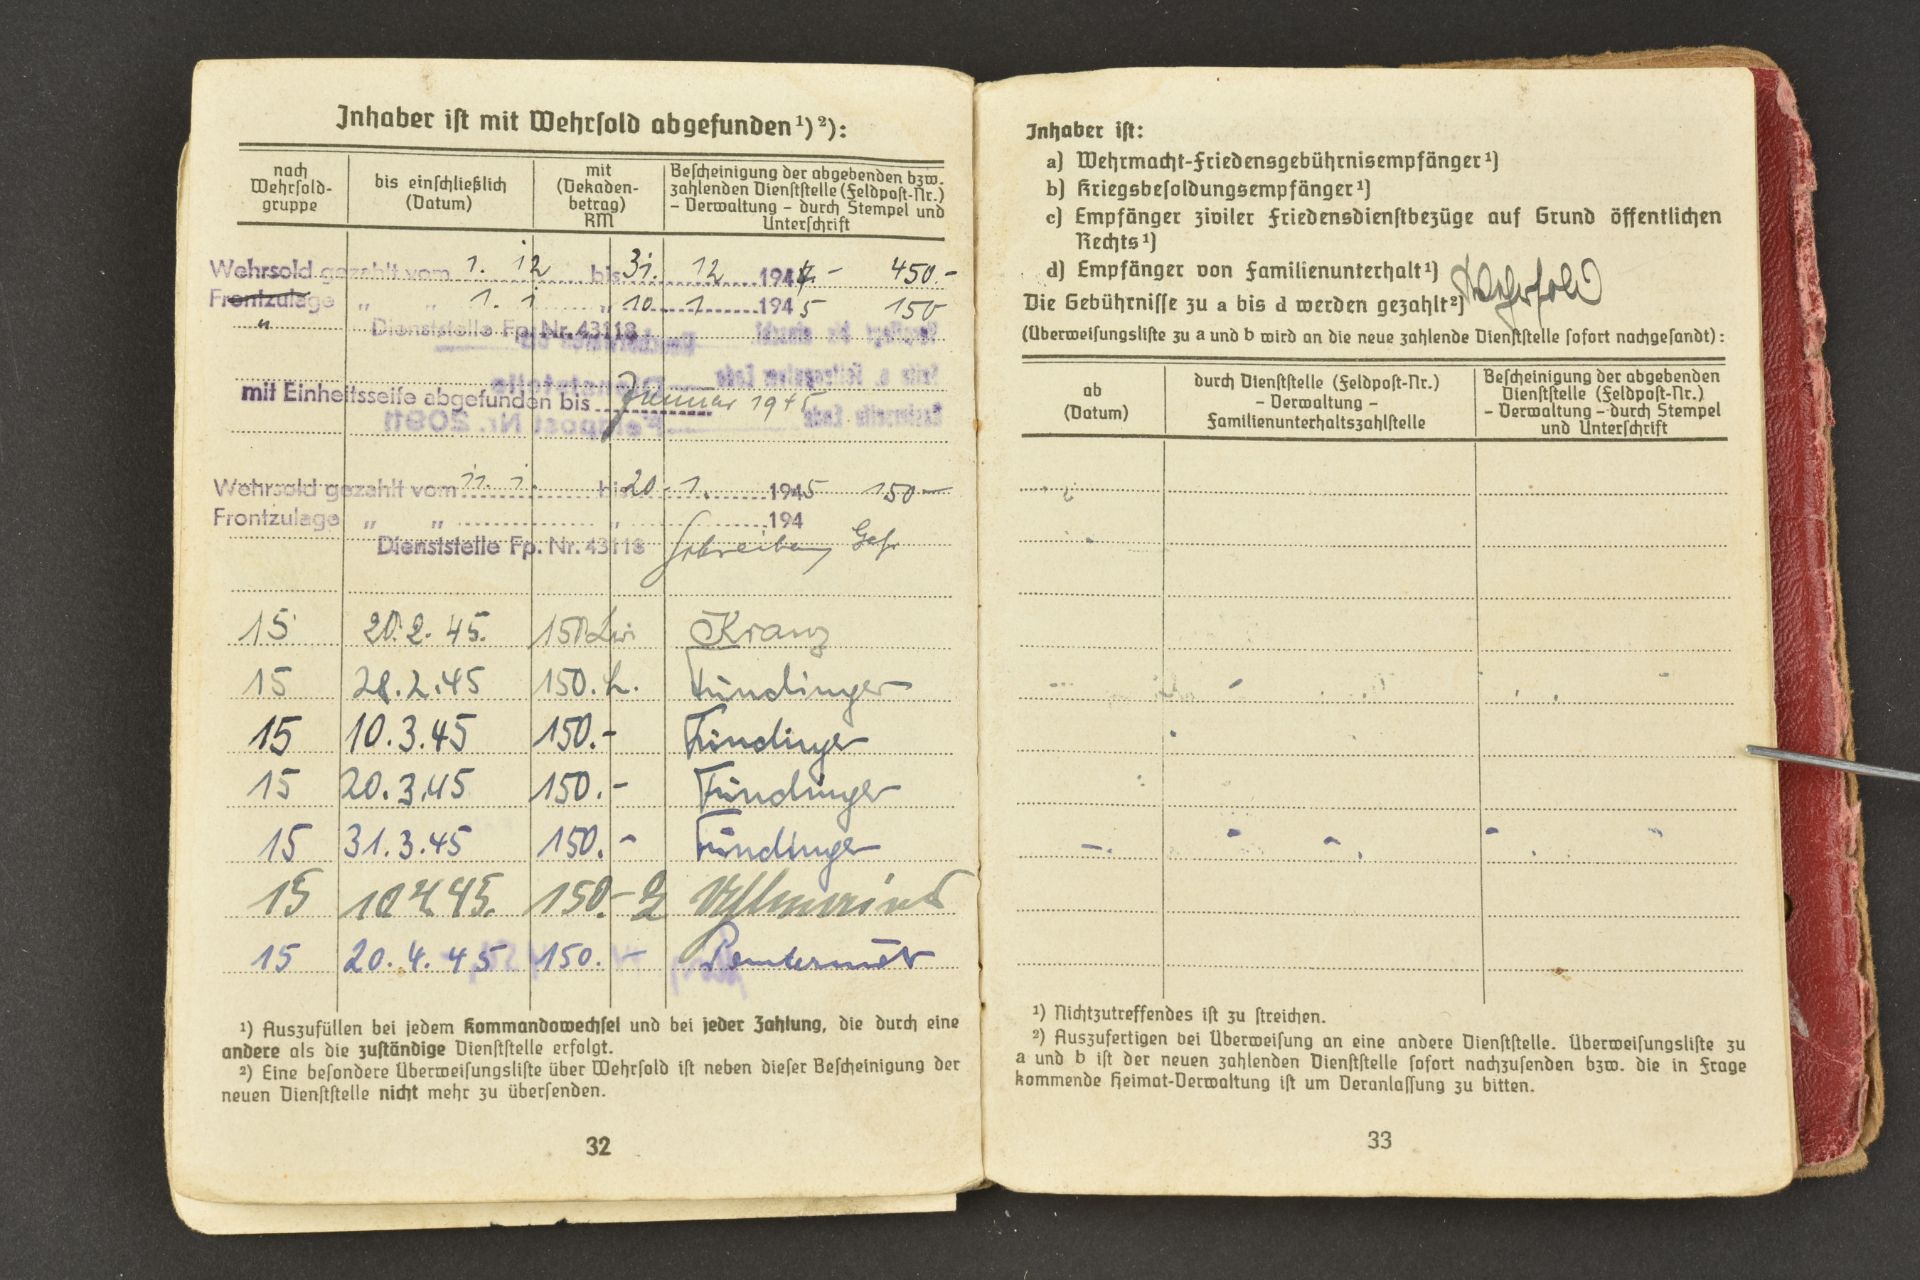 Inhaber ist mit Wehrsold abgefunden¹)²):
nach Wehrsold-gruppe
bis einschließlich (Datum)
mit (Dekaden-betrag) RM
Bescheinigung der abgebenden bzw. zahlenden Dienststelle (Feldpost-Nr.) - Verwaltung - durch Stempel und Unterschrift
Wehrsold gezahlt vom 1. 12 bis 31. 12 1944 - 450.-
Frontzulage „ „ 1. 1 „ 10. 1. 1945 150
" Dienststelle Fp. Nr. 43118
Dienststelle
mit Einheitsseife abgefunden bis Januar 1945
Feldpost Nr. 20911
Wehrsold gezahlt vom 11. 1. bis 20. 1. 1945 150-
Frontzulage „ „ „ 194
Dienststelle Fp. Nr. 43118
15 20. 2. 45. 150 Kranz
15 28. 2. 45 150. Fündinger
15 10. 3. 45 150.- Fündinger
15 20. 3. 45 150.- Fündinger
15 31. 3. 45 150.- Fündinger
15 10 4. 45. 150.-
15 20. 4. 45 150.-
¹) Auszufüllen bei jedem Kommandowechsel und bei jeder Zahlung, die durch eine
andere als die zuständige Dienststelle erfolgt.
²) Eine besondere Überweisungsliste über Wehrsold ist neben dieser Bescheinigung der
neuen Dienststelle nicht mehr zu übersenden.
32
Inhaber ist:
a) Wehrmacht-Friedensgebührnisempfänger¹)
b) Kriegsbesoldungsempfänger¹)
c) Empfänger ziviler Friedensdienstbezüge auf Grund öffentlichen
Rechts¹)
d) Empfänger von Familienunterhalt¹)
Die Gebührnisse zu a bis d werden gezahlt²)
(Überweisungsliste zu a und b wird an die neue zahlende Dienststelle sofort nachgesandt):
ab (Datum)
durch Dienststelle (Feldpost-Nr.) - Verwaltung - Familienunterhaltszahlstelle
Bescheinigung der abgebenden Dienststelle (Feldpost-Nr.) - Verwaltung - durch Stempel und Unterschrift
¹) Nichtzutreffendes ist zu streichen.
²) Auszufertigen bei Überweisung an eine andere Dienststelle. Überweisungsliste zu
a und b ist der neuen zahlenden Dienststelle sofort nachzusenden bzw. die in Frage
kommende Heimat-Verwaltung ist um Veranlassung zu bitten.
33